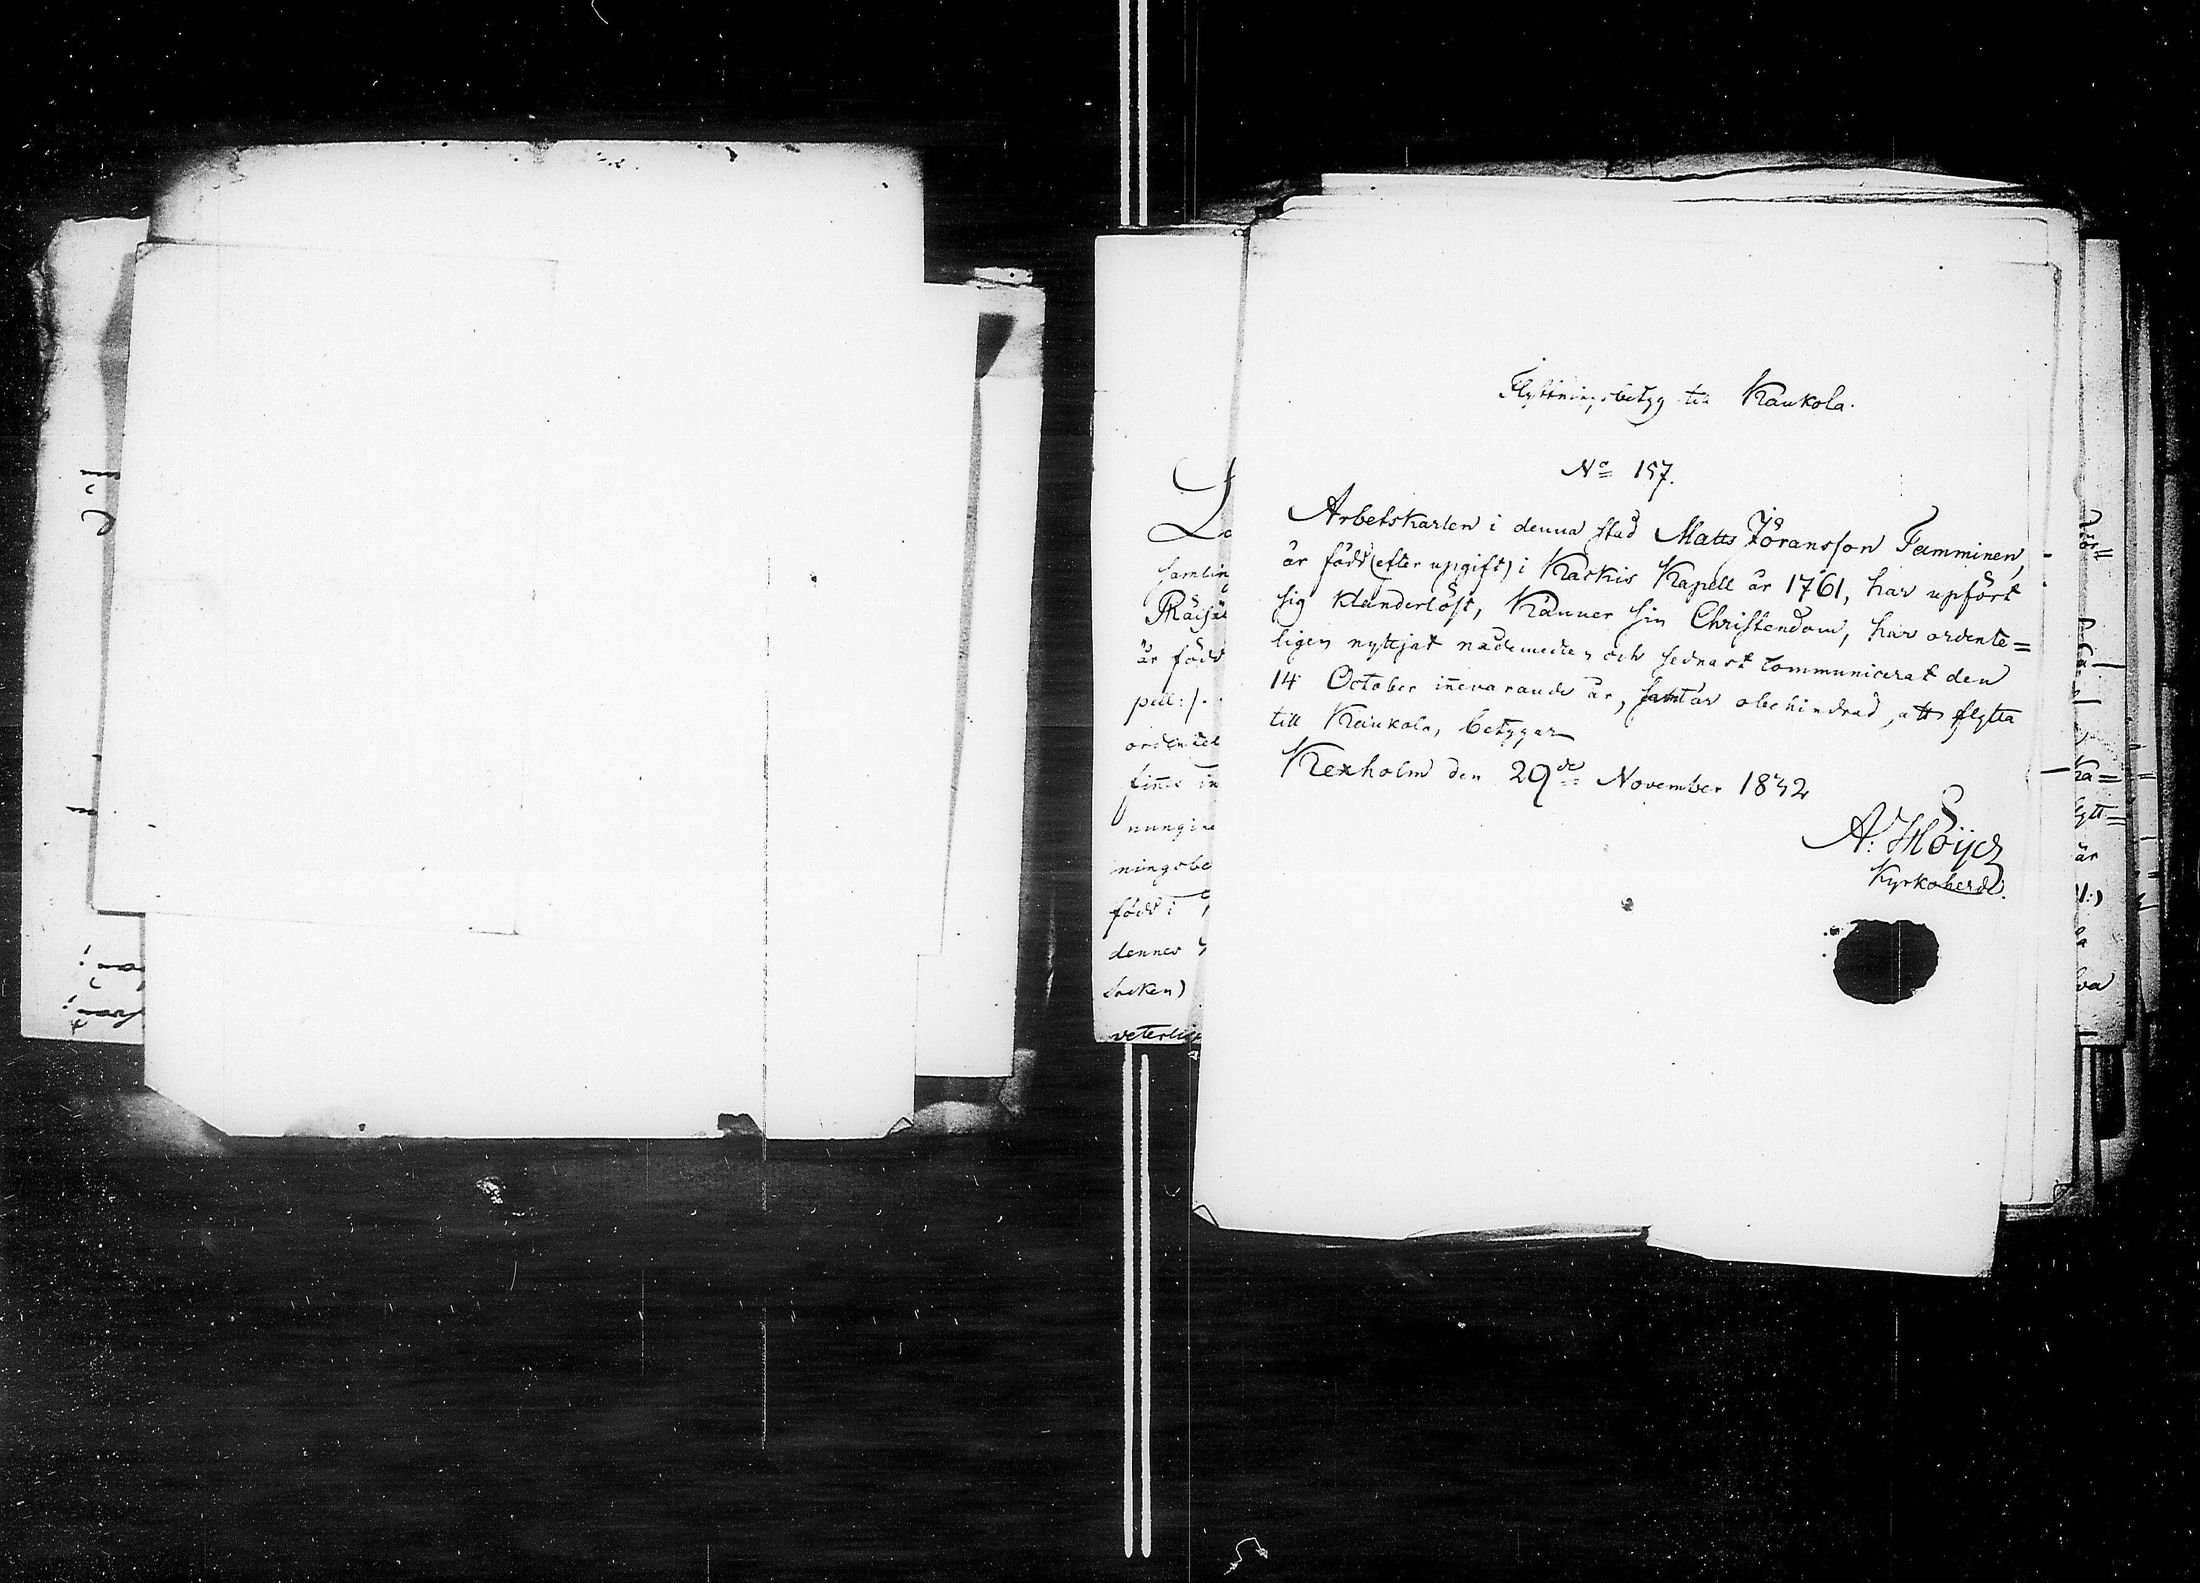 Flyttningsbetyg till Kaukola.
No 157.
Arbetskarlen i denna stad Matts Jöransson Tamminen,
är född (efter upgift) i Kaskis Kapell år 1761, har upfört
sig klanderlöst, känner sin Christendom, har ordente=
ligen nyttjat nådemedlen och sednast communicerat den
14 October innevarande år, samt är obehindrad, att flytta
till Kaukola, betygar
Kexholm den 29de November 1832
A. Höijer
Kyrkoherde.
samlin
är född
pell:).
ordentel
finnes in
ningsbe
född i
dennes
Socken)
veterlig